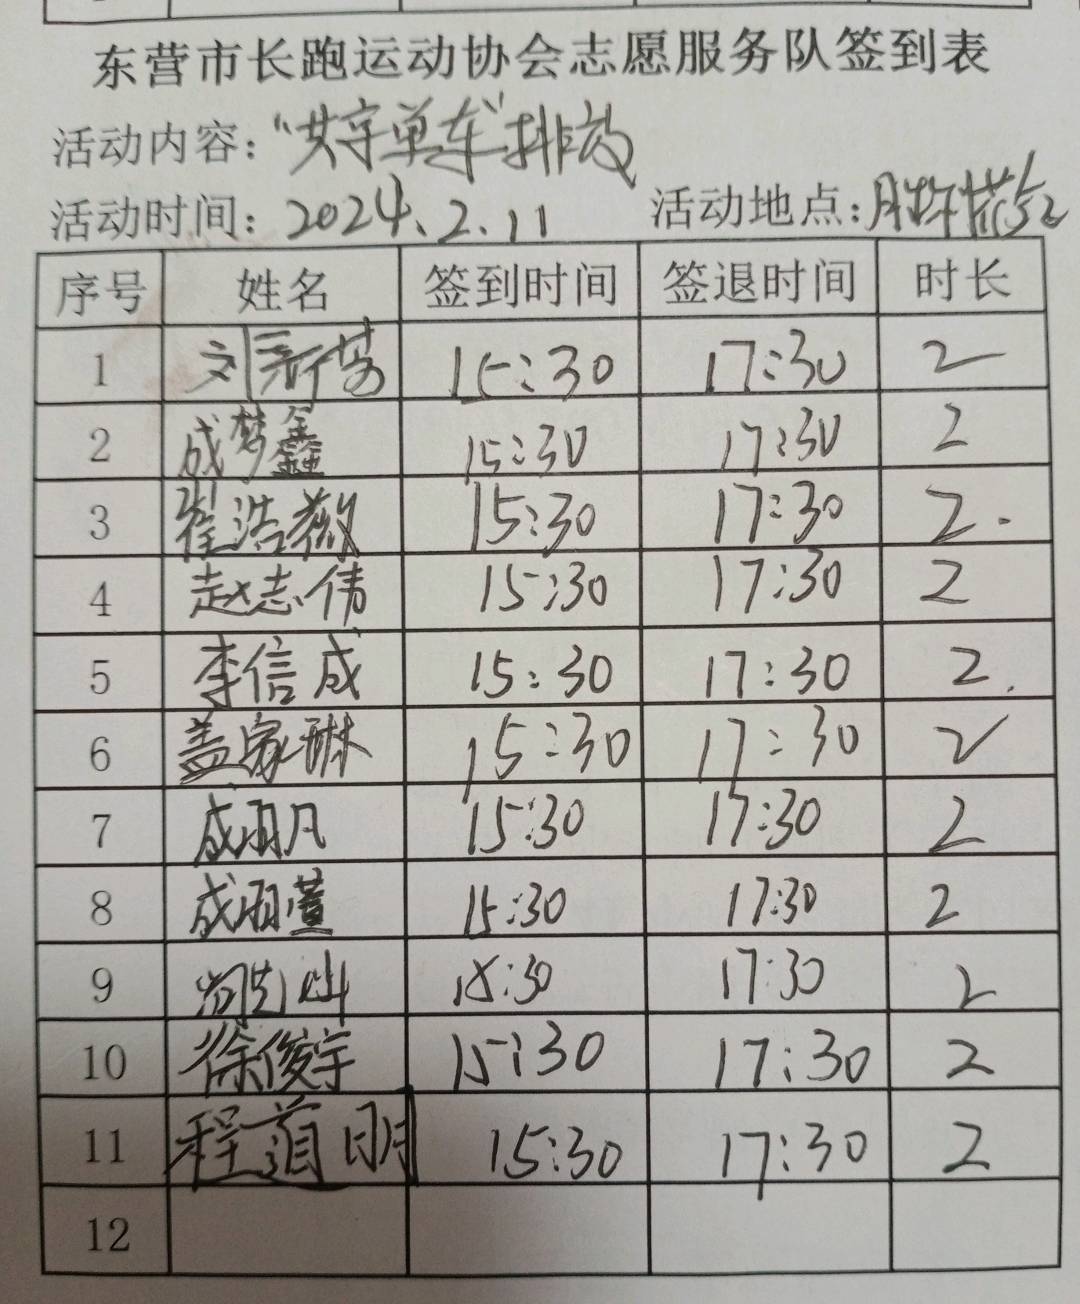 东营市长跑运动协会志愿服务队签到表
活动内容："共享单车"排放
活动时间：2024.2.11 活动地点：胜利
序号 姓名 签到时间 签退时间 时长
1 刘新芳 15:30 17:30 2
2 成梦鑫 15:30 17:30 2
3 崔浩薇 15:30 17:30 2.
4 赵志伟 15:30 17:30 2
5 李信成 15:30 17:30 2.
6 盖家琳 15:30 17:30 2
7 成雨凡 15:30 17:30 2
8 成雨萱 15:30 17:30 2
9 15:30 17:30 2
10 徐俊宇 15:30 17:30 2
11 程道明 15:30 17:30 2
12